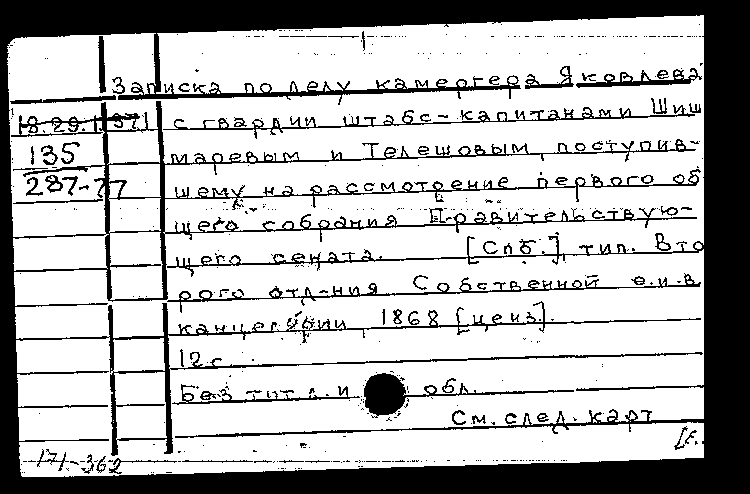 Записка по делу камергера Яковлева
18.29.1.371 с гвардии штабс-капитанами Шиш
135 маревым и Телешовым, поступив-
287-77 шему на рассмотрение первого об
щего собрания Правительствую-
щего сената. [Спб.], тип. Вто
рого отд-ния Собственной е.и.в.
канцелярии, 1868 [ценз].
12 с.
Без тит. л. и обл.
См. след. карт
171-362